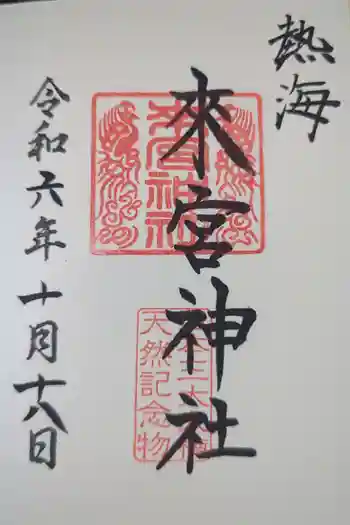 熱海
來宮神社
來宮神社
天然記念物
令和六年十月十八日